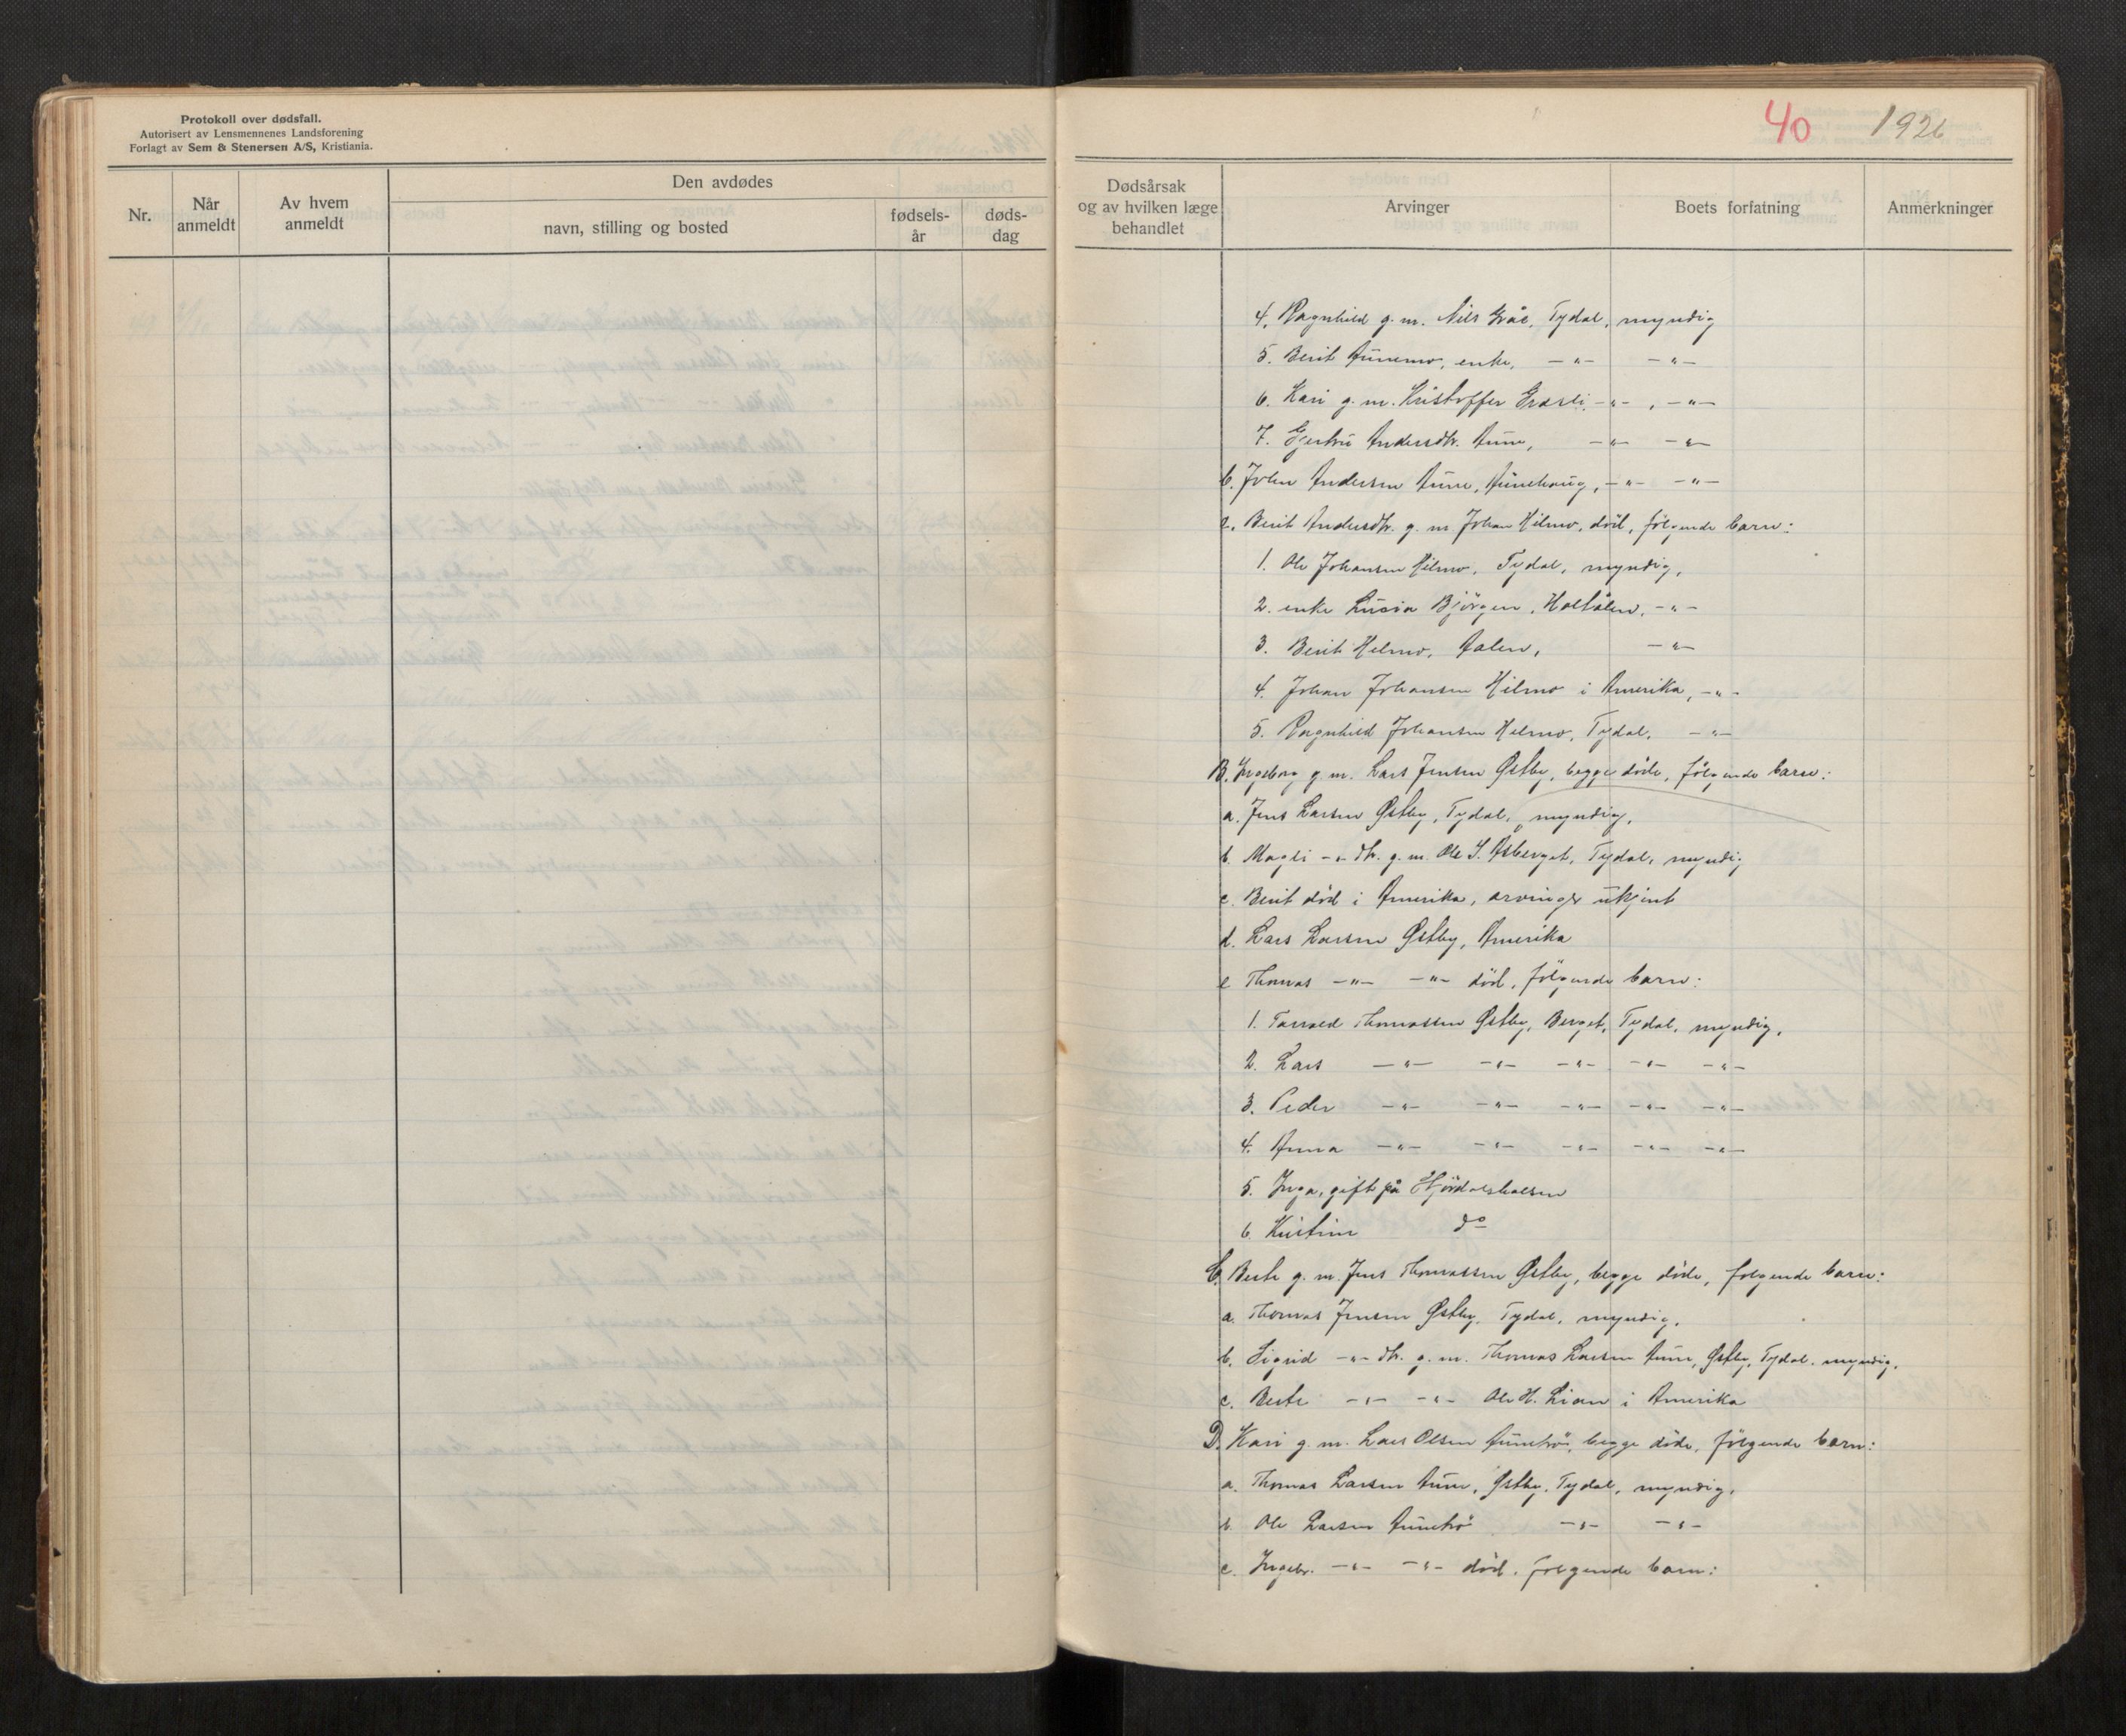 Protokoll over dødsfall.
Autorisert av Lensmennenes Landsforening
Forlagt av Sem & Stenersen A/S, Kristiania.
Nr.
Når anmeldt
Av hvem anmeldt
Den avdødes
navn, stilling og bosted
fødsels-år
døds-dag
40 1926
Dødsårsak og av hvilken læge behandlet
Arvinger
Boets forfatning
Anmerkninger
4. Ragnhild g. m. Nils Græ, Tydal, myndig
5. Berit Aunemo, enke, -"- -"-
6. Kari g. m. Kristoffer Græsli -"- , -"-
7. Gjertru Andersdtr. Aune, -"- -"-
b. John Andersen Aune, Aunehaug, -"- -"-
2. Berit Andersdtr. g. m. Johan Hilmo, död, følgende barn:
1. Ole Johansen Hilmo, Tydal, myndig,
2. enke Lucia Bjørgen, Holtålen, -"-
3. Berit Hilmo, Aalen, -"-
4. Johan Johansen Hilmo i Amerika, -"-
5. Ragnhild Johansen Hilmo, Tydal, -"-
B. Ingeborg g. m. Lars Jensen Østby, begge døde, følgende barn:
a. Jens Larsen Østby, Tydal, myndig,
b. Magli -"- dtr. g. m. Ole S. Asberget, Tydal, myndig
c. Berit död i Amerika, arvinger ukjent
d. Lars Larsen Østby, Amerika
e Thomas -"- -"- död, følgende barn:
1. Tarald Thomassen Østby, Berget, Tydal, myndig,
2. Lars -"- -"- -"- -"- -"-
3. Peder -"- -"- -"- -"- -"-
4. Anna -"- -"- -"- -"- -"-
5. Inga, gift på Stjørdalshalsen
6. Kristine do
C. Berte g. m. Jens Thomassen Østby, begge døde, følgende barn:
a. Thomas Jensen Østby, Tydal, myndig,
b. Sigrid -"- dtr. g. m. Thomas Larsen Aune, Østby, Tydal, myndig,
c. Berte -"- -"- Ole H. Lian i Amerika
D. Kari g. m. Lars Olsen Aunetrø, begge døde, følgende barn:
a. Thomas Larsen Aune, Østby, Tydal, myndig,
b. Ole Larsen Aunetrø -"- -"-
c. Ingebr. -"- -"- död, følgende barn: